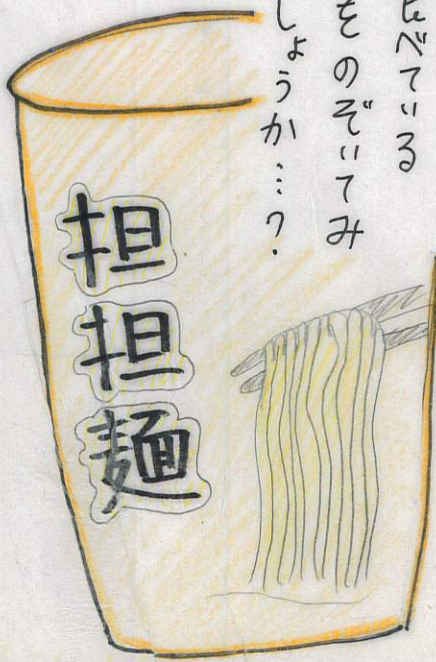 べている
をのぞいてみ
しょうか…?
担担麺